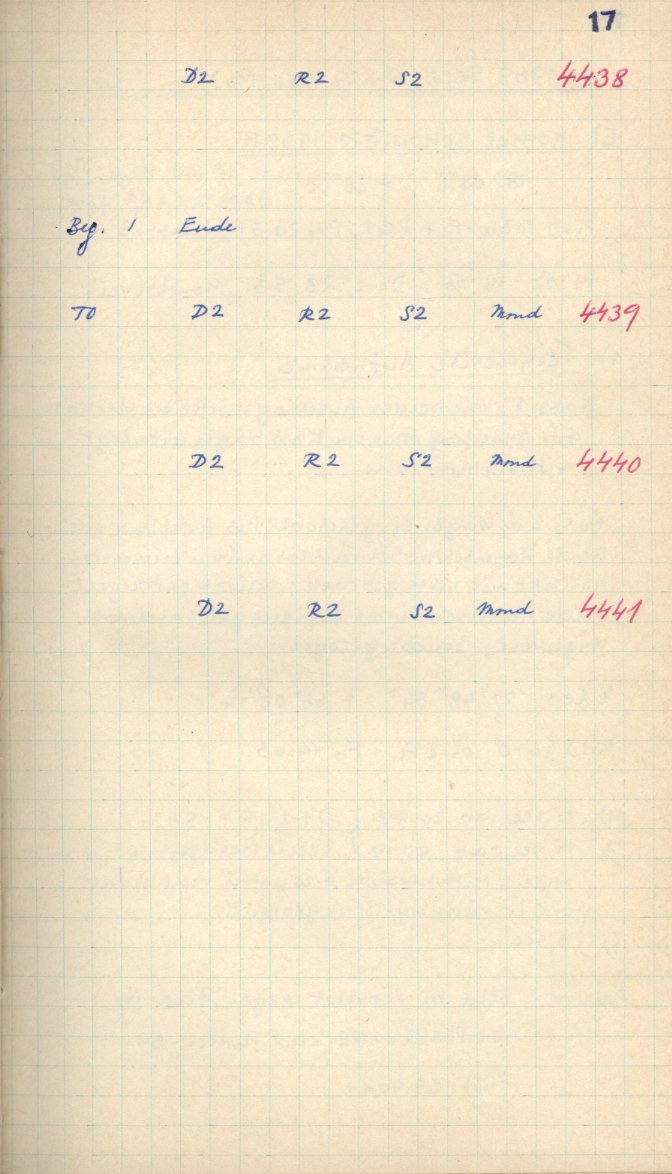 17
D2 R2 S2 4438
Beg. 1 Ende
TO D2 R2 S2 Mond 4439
D2 R2 S2 Mond 4440
D2 R2 S2 Mond 4441